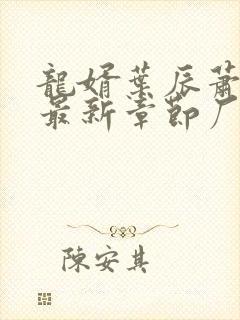 龍婿葉辰蕭
最新章節厂
陳安其